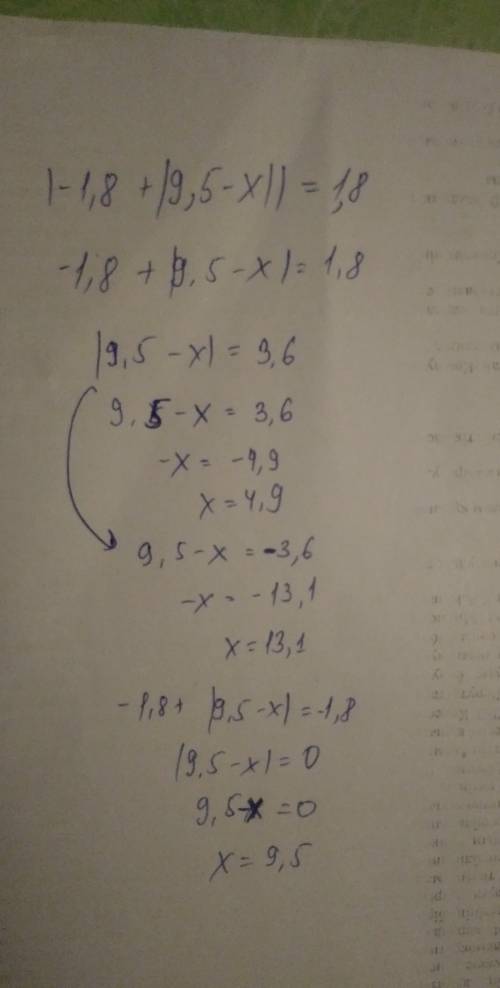 |-1,8 + |9,5 - x|| = 1,8
-1,8 + |9,5 - x| = 1,8
|9,5 - x| = 3,6
9,5 - x = 3,6
-x = -4,9
x = 4,9
9,5 - x = -3,6
-x = -13,1
x = 13,1
-1,8 + |9,5 - x| = -1,8
|9,5 - x| = 0
9,5 - x = 0
x = 9,5